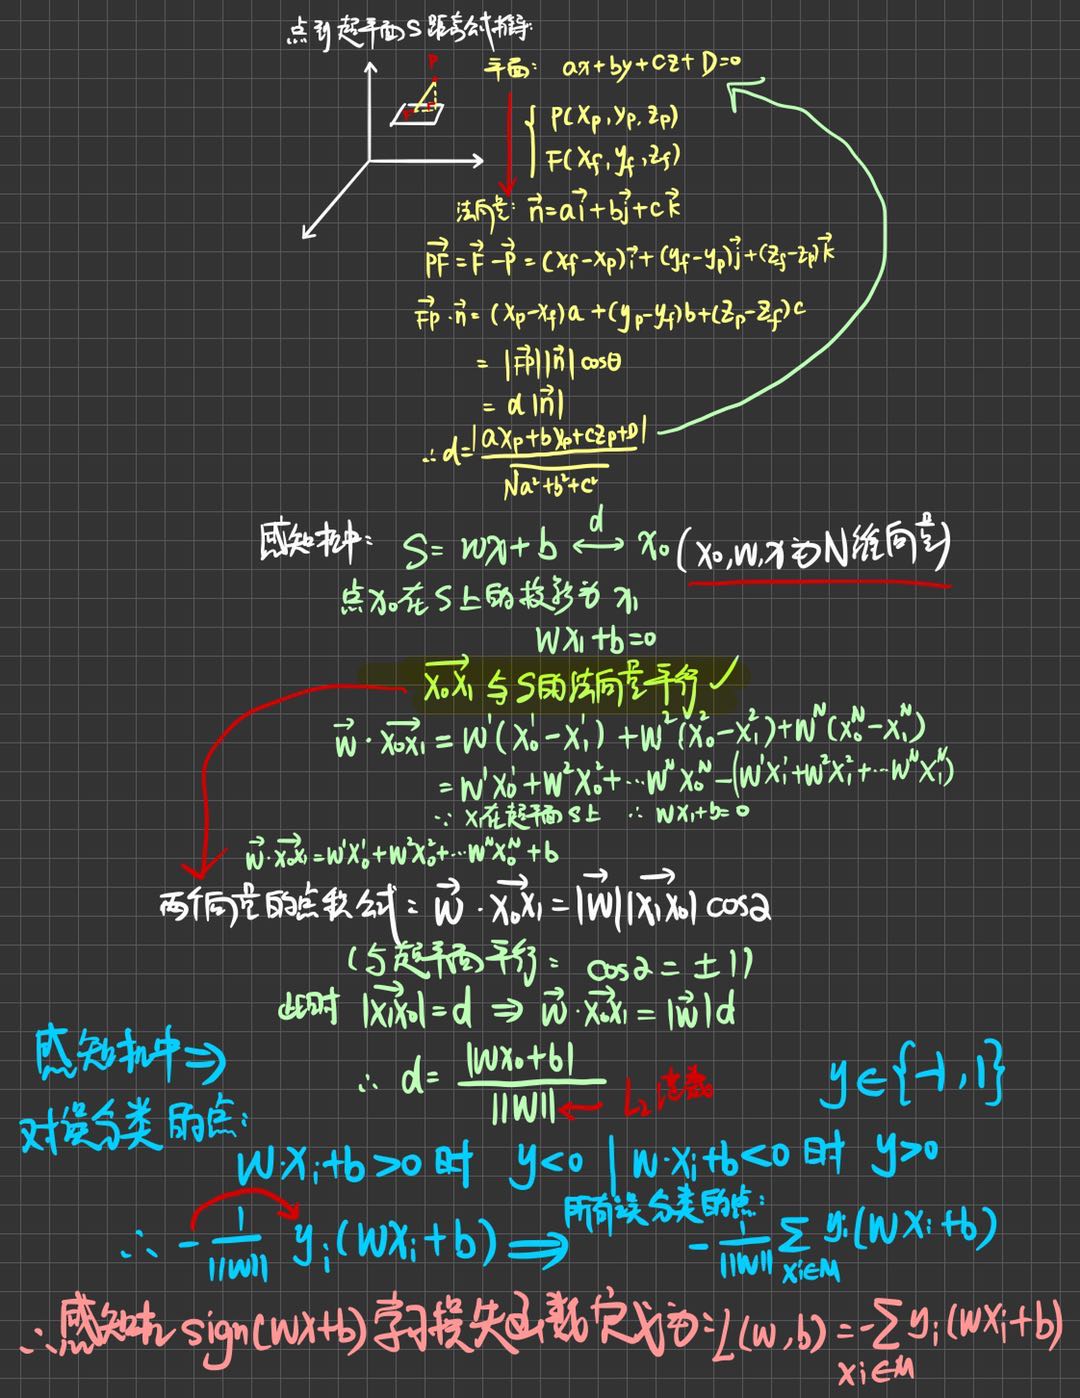 点到超平面S距离公式推导:
P
F
平面: ax+by+cz+D=0
P(xp, yp, zp)
F(xf, yf, zf)
法向量: n⃗=ai⃗+bj⃗+ck⃗
PF⃗=F⃗-P⃗=(xf-xp)i⃗+(yf-yp)j⃗+(zf-zp)k⃗
FP⃗·n⃗=(xp-xf)a+(yp-yf)b+(zp-zf)c
=|FP⃗||n⃗|cosθ
=d|n⃗|
∴d=|axp+byp+czp+D|/√a²+b²+c²
感知机中: S=wx+b ⟷ d x₀(x₀,w,x为N维向量)
点x₀在S上的投影为x₁
wx₁+b=0
x₀x₁⃗与S的法向量平行✓
w⃗·x₀x₁⃗=w¹(x₀¹-x₁¹)+w²(x₀²-x₁²)+wᴺ(x₀ᴺ-x₁ᴺ)
=w¹x₀¹+w²x₀²+…wᴺx₀ᴺ-(w¹x₁¹+w²x₁²+…wᴺx₁ᴺ)
∵x₁在超平面S上 ∴wx₁+b=0
w⃗·x₀x₁⃗=w¹x₀¹+w²x₀²+…wᴺx₀ᴺ+b
两个向量的点积公式: w⃗·x₀x₁⃗=|w⃗||x₁x₀⃗|cosα
(与超平面平行: cosα=±1)
此时|x₁x₀⃗|=d⇒w⃗·x₀x₁⃗=|w⃗|d
∴d=|wx₀+b|/||w|| ← L₂范数
感知机中⇒
y∈{-1,1}
对误分类的点:
w·xᵢ+b>0时 y<0 | w·xᵢ+b<0时 y>0
∴-1/||w|| yᵢ(wxᵢ+b)⇒
所有误分类的点:
-1/||w|| Σ xi∈M yᵢ(wxᵢ+b)
∴感知机sign(wx+b)学习损失函数定义为:L(w,b)=-Σ xi∈M yᵢ(wxᵢ+b)